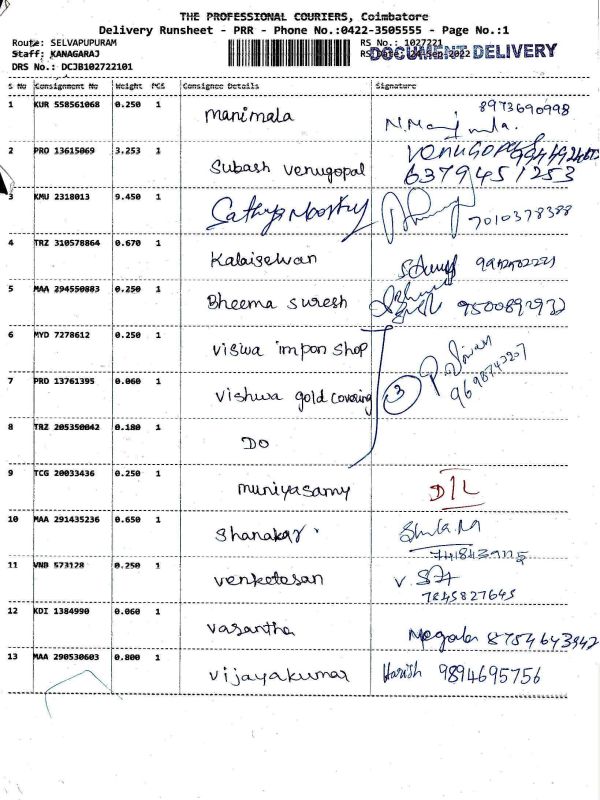 THE PROFESSIONAL COURIERS, Coimbatore
Delivery Runsheet - PRR - Phone No.:0422-3505555 - Page No.:1
Route: SELVAPUPURAM
RS No.: 1027221
Staff: KANAGARAJ
RS Date: 24-Sep-2022
DOCUMENT DELIVERY
DRS No.: DCJB102722101
S No Consignment No Weight PCS Consignee Details Signature
1 KUR 558561068 0.250 1 manimala 8973690998
2 PRO 13615069 3.253 1 Subash venugopal VENUGOPAL 6379451253
3 KMU 2318013 9.450 1 Sathya Moorthy 7010378388
4 TRZ 310578864 0.670 1 Kalaiselvan
5 MAA 294550883 0.250 1 Bheema Suresh 9500892932
6 MYD 7278612 0.250 1 viswa impon shop
7 PRD 13761395 0.060 1 vishwa gold covering 3
8 TRZ 205350042 0.180 1 DO
9 TCG 20033436 0.250 1 muniyasamy D/L
10 MAA 291435236 0.650 1 Shanakar
11 VNB 573128 0.250 1 venketesan 7845827645
12 KDI 1384990 0.060 1 vasantha 8754643942
13 MAA 290530603 0.800 1 vijayakumar Harish 9894695756